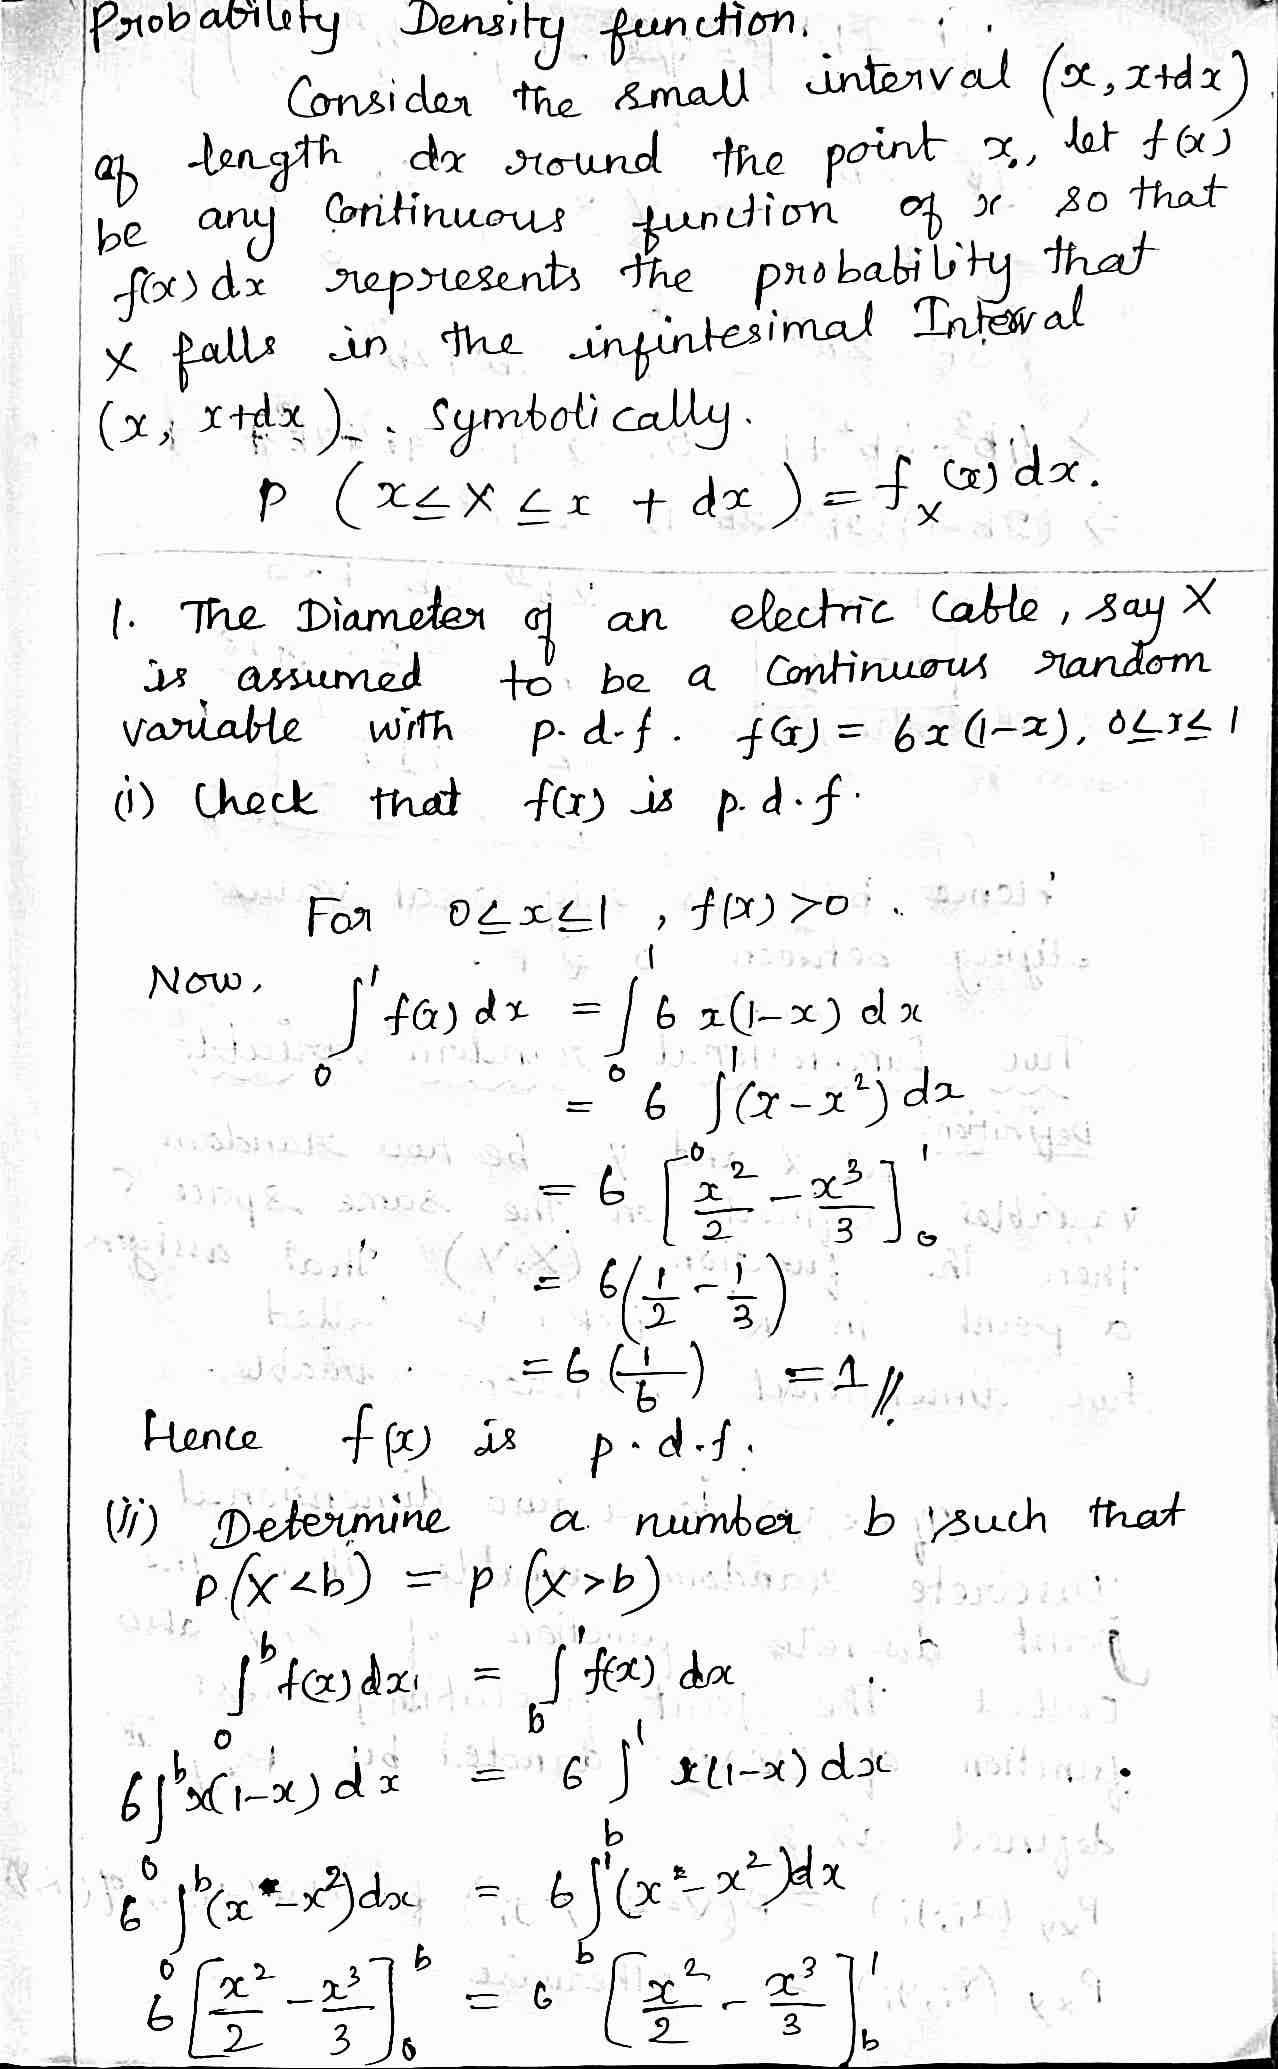 Probability Density function.
Consider the small interval (x, x+dx)
of length dx round the point x, let f(x)
be any Continuous function of x so that
f(x) dx represents the probability that
X falls in the infintesimal Interval
(x, x+dx). Symbolically.
P (x ≤ X ≤ x + dx) = f_X(x) dx.
1. The Diameter of an electric Cable, say X
is assumed to be a Continuous random
variable with p.d.f. f(x) = 6x(1-x), 0≤x≤1
(i) Check that f(x) is p.d.f.
For 0≤x≤1, f(x)>0.
Now, ∫₀¹ f(x) dx = ∫₀¹ 6x(1-x) dx
= 6 ∫₀¹ (x-x²) dx
= 6 [x²/2 - x³/3]₀¹
= 6(1/2 - 1/3)
= 6 (1/6) = 1 //.
Hence f(x) is p.d.f.
(ii) Determine a number b such that
P(X<b) = P(X>b)
∫₀ᵇ f(x) dx = ∫_b¹ f(x) dx
6∫₀ᵇ x(1-x) dx = 6 ∫_b¹ x(1-x) dx
6 ∫₀ᵇ (x - x²) dx = 6 ∫_b¹ (x - x²) dx
6 [x²/2 - x³/3]₀ᵇ = 6 [x²/2 - x³/3]_b¹